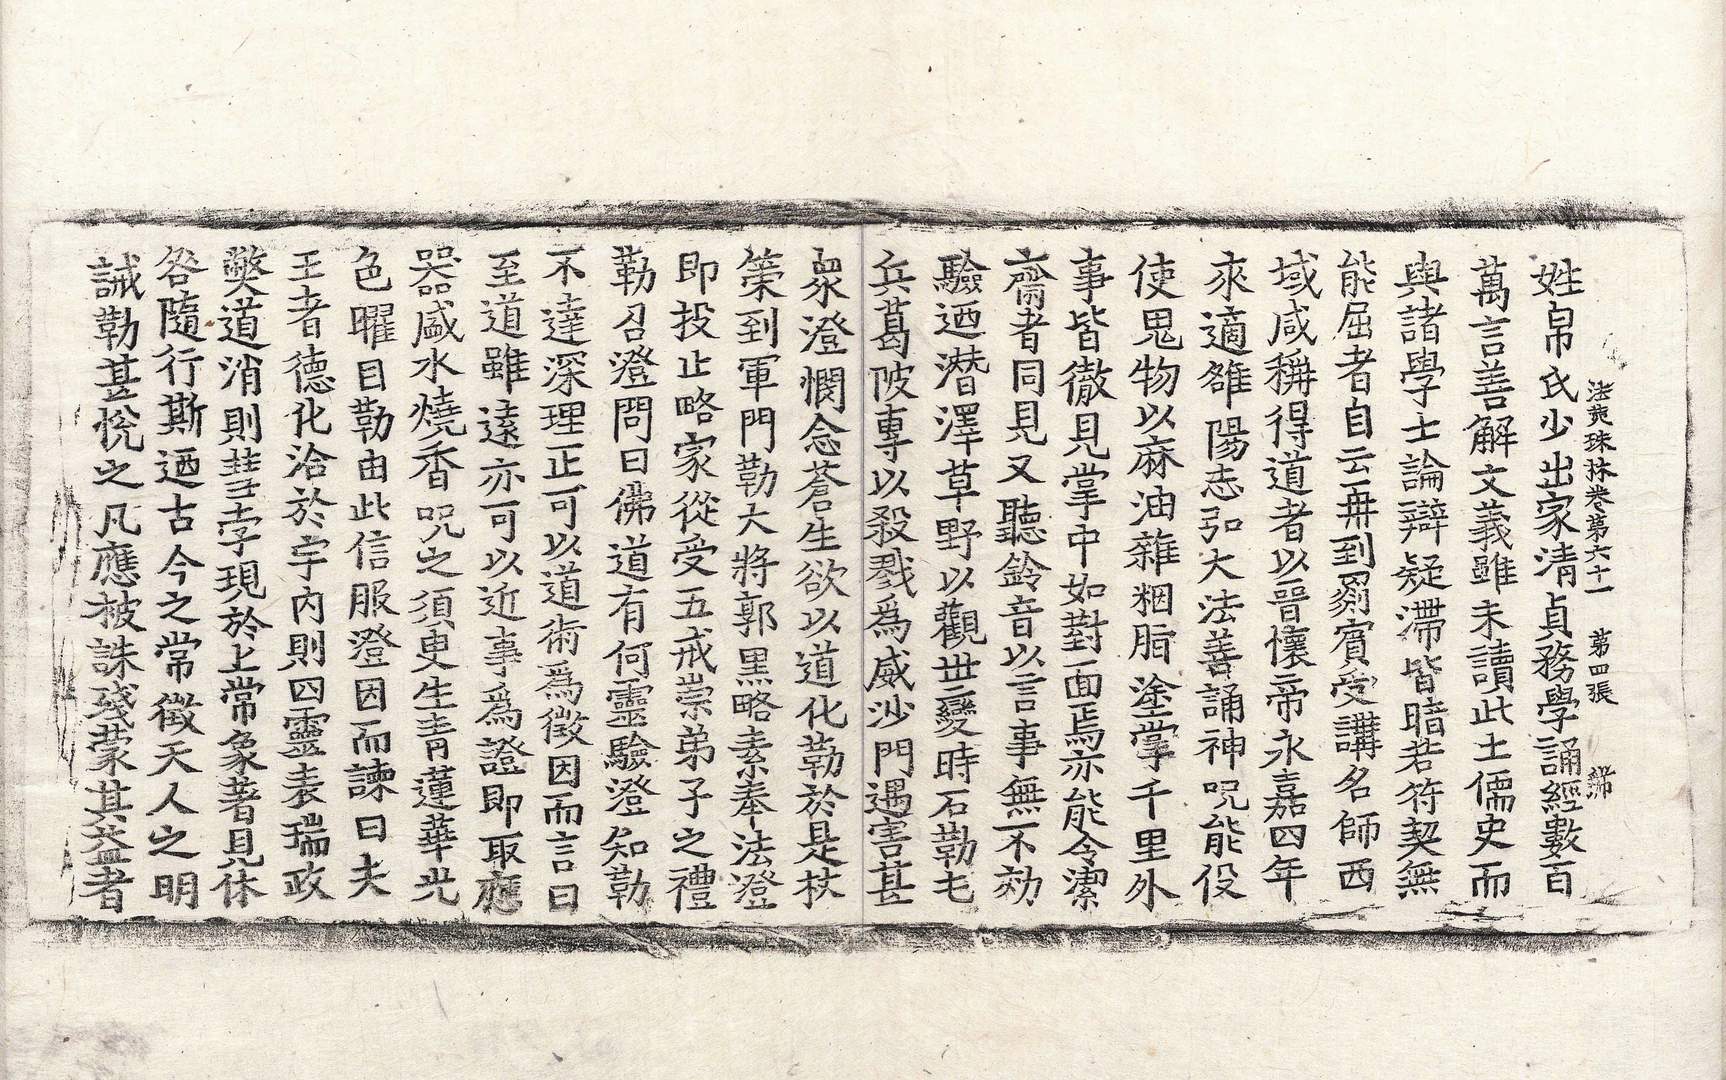 法苑珠林卷第六十一 第四張 鄉
姓帛氏少出家清貞務學誦經數百
萬言善解文義雖未讀此土儒史而
與諸學士論辯疑滯皆暗若符契無
能屈者自云再到罽賓受講名師西
域咸稱得道者以晉懷帝永嘉四年
來適雒陽志弘大法善誦神呪能役
使鬼物以麻油雜胭脂塗掌千里外
事皆徹見掌中如對面焉亦能令潔
齋者同見又聽鈴音以言事無不効
驗迺潛澤草野以觀世變時石勒屯
兵葛陂專以殺戮爲威沙門遇害甚
衆澄憫念蒼生欲以道化勒於是杖
策到軍門勒大將郭黑略素奉法澄
即投止略家從受五戒崇弟子之禮
勒召澄問曰佛道有何靈驗澄知勒
不達深理正可以道術爲徵因而言曰
至道雖遠亦可以近事爲證即取應
器盛水燒香呪之須臾生青蓮華光
色曜目勒由此信服澄因而諫曰夫
王者德化洽於宇內則四靈表瑞政
弊道消則彗孛現於上常象著見休
咎隨行斯迺古今之常徵天人之明
誡勒甚悅之凡應被誅殘蒙其益者